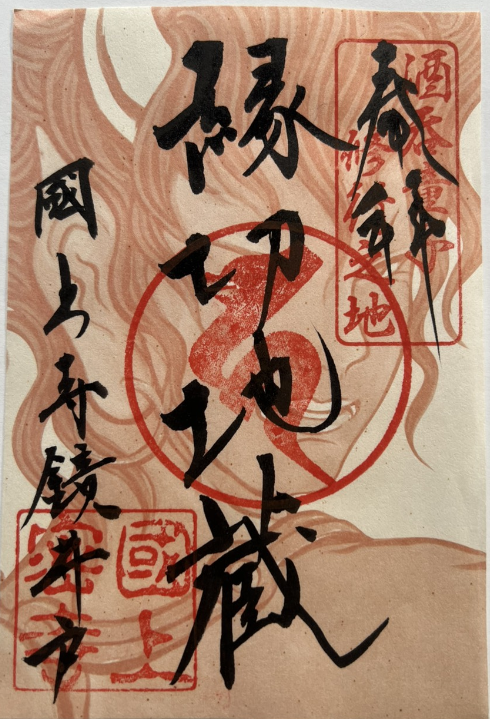 奉拝
酒呑童子
修行之地
縁切地蔵
國上寺鏡井戸
國上
寺